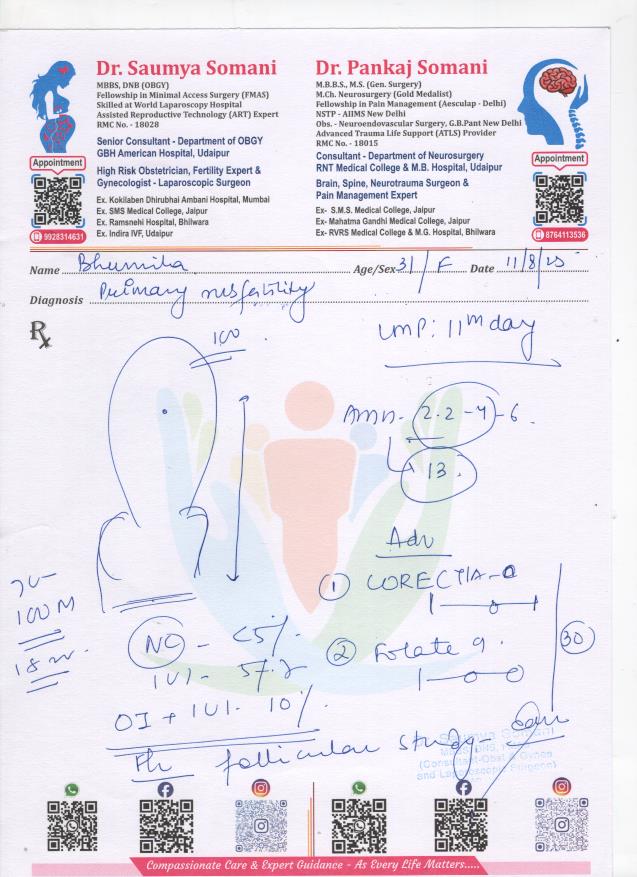 Dr. Saumya Somani
MBBS, DNB (OBGY)
Fellowship in Minimal Access Surgery (FMAS)
Skilled at World Laparoscopy Hospital
Assisted Reproductive Technology (ART) Expert
RMC No. - 18028
Senior Consultant - Department of OBGY
GBH American Hospital, Udaipur
High Risk Obstetrician, Fertility Expert &
Gynecologist - Laparoscopic Surgeon
Ex. Kokilaben Dhirubhai Ambani Hospital, Mumbai
Ex. SMS Medical College, Jaipur
Ex. Ramsnehi Hospital, Bhilwara
Ex. Indira IVF, Udaipur
Appointment
9928314631
Dr. Pankaj Somani
M.B.B.S., M.S. (Gen. Surgery)
M.Ch. Neurosurgery (Gold Medalist)
Fellowship in Pain Management (Aesculap - Delhi)
NSTP - AIIMS New Delhi
Obs. - Neuroendovascular Surgery, G.B.Pant New Delhi
Advanced Trauma Life Support (ATLS) Provider
RMC No. - 18015
Consultant - Department of Neurosurgery
RNT Medical College & M.B. Hospital, Udaipur
Brain, Spine, Neurotrauma Surgeon &
Pain Management Expert
Ex- S.M.S. Medical College, Jaipur
Ex- Mahatma Gandhi Medical College, Jaipur
Ex- RVRS Medical College & M.G. Hospital, Bhilwara
Appointment
8764113536
Name Bhumika Age/Sex 31/F Date 11/8/25
Diagnosis Primary subfertility
Rx
100
LMP: 11th day
AMH - 2.2 - 4 - 6
13
Adv
① CORECTIA-
② Folate 9
30
100 M
NC - <5%
IUI - 5%
OI + IUI - 10%
follicular study
Saumya Somani
(Consultant-Obst & Gynec
and Laparoscopic Surgeon)
Compassionate Care & Expert Guidance - As Every Life Matters.....